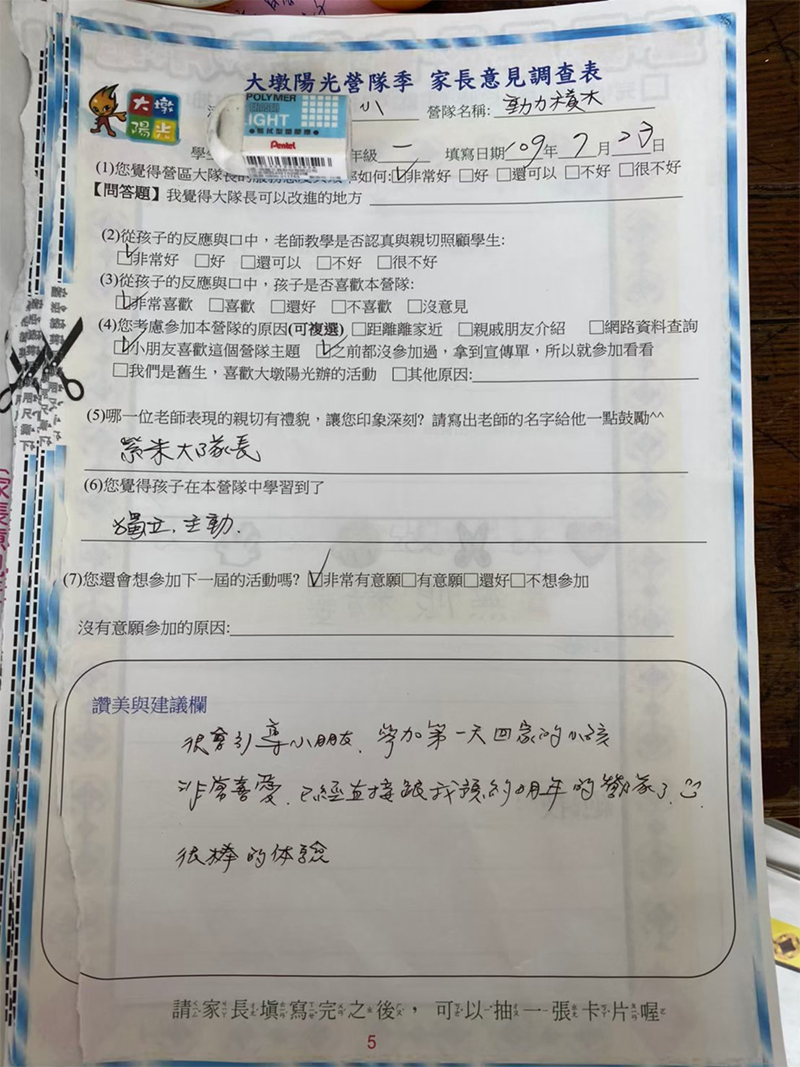 大墩陽光營隊季 家長意見調查表
大墩
陽光
POLYMER
IGHT
Pentel
小 營隊名稱: 動力積木
學生 年級 一 填寫日期 109年 7月 23日
(1)您覺得營區大隊長的服務態度與效率如何:□非常好 □好 □還可以 □不好 □很不好
【問答題】我覺得大隊長可以改進的地方
(2)從孩子的反應與口中，老師教學是否認真與親切照顧學生:
□非常好 □好 □還可以 □不好 □很不好
(3)從孩子的反應與口中，孩子是否喜歡本營隊:
□非常喜歡 □喜歡 □還好 □不喜歡 □沒意見
(4)您考慮參加本營隊的原因(可複選) □距離離家近 □親戚朋友介紹 □網路資料查詢
□小朋友喜歡這個營隊主題 □之前都沒參加過，拿到宣傳單，所以就參加看看
□我們是舊生，喜歡大墩陽光辦的活動 □其他原因:
(5)哪一位老師表現的親切有禮貌，讓您印象深刻? 請寫出老師的名字給他一點鼓勵^^
大隊長
(6)您覺得孩子在本營隊中學習到了
獨立，主動.
(7)您還會想參加下一屆的活動嗎? □非常有意願□有意願□還好□不想參加
沒有意願參加的原因:
讚美與建議欄
很會引導小朋友，參加第一天回家的小孩
非常喜愛，已經直接跟我預約明年的營隊了
很棒的体驗
請家長填寫完之後，可以抽一張卡片喔
5